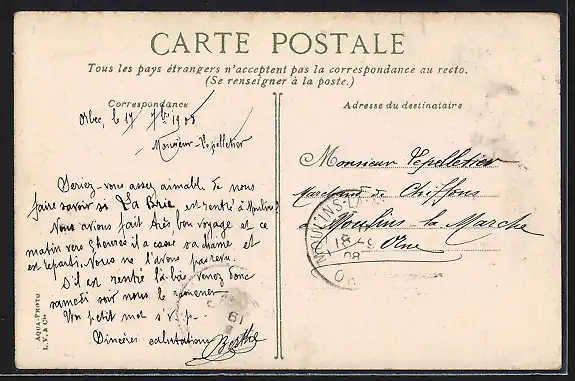 CARTE POSTALE
Tous les pays étrangers n'acceptent pas la correspondance au recto.
(Se renseigner à la poste.)
Correspondance
Adresse du destinataire
Orbec, le 17 7bre 1908
Monsieur Lepelletier
Seriez-vous assez aimable de nous
faire savoir si La Brie est rentré à Moulins?
Nous avions fait très bon voyage et ce
matin vers 9 heures il a cassé sa chaine et
est reparti. Nous ne l'avons pas revu.
S'il est rentré là-bas venez donc
samedi soir nous le ramener
Un petit mot s.v.p.
Sincères salutations Berthe
Monsieur Lepelletier
Marchand de Chiffons
à Moulins-la-Marche
Orne
MOULINS-LA
18 - 9
08
AQUA-PHOTO
L. V. & Cie